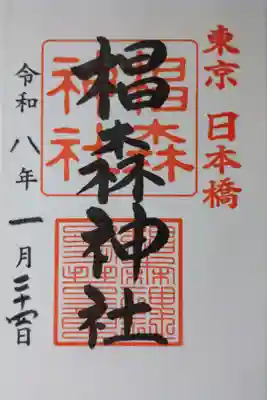 東京 日本橋
椙森神社
椙森
神社
令和八年 一月二十四日